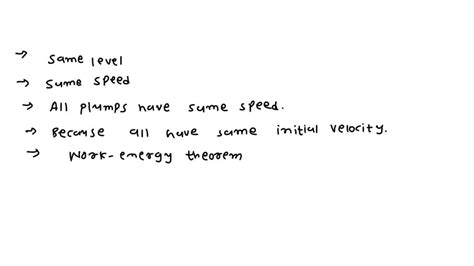 → Same level
→ Same speed
→ All plumps have same speed.
→ Because all have same initial velocity.
→ Work-energy theorem